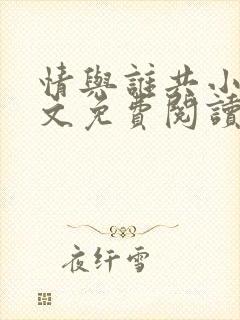 情與誰共小
文免費閱讀
夜纤雪